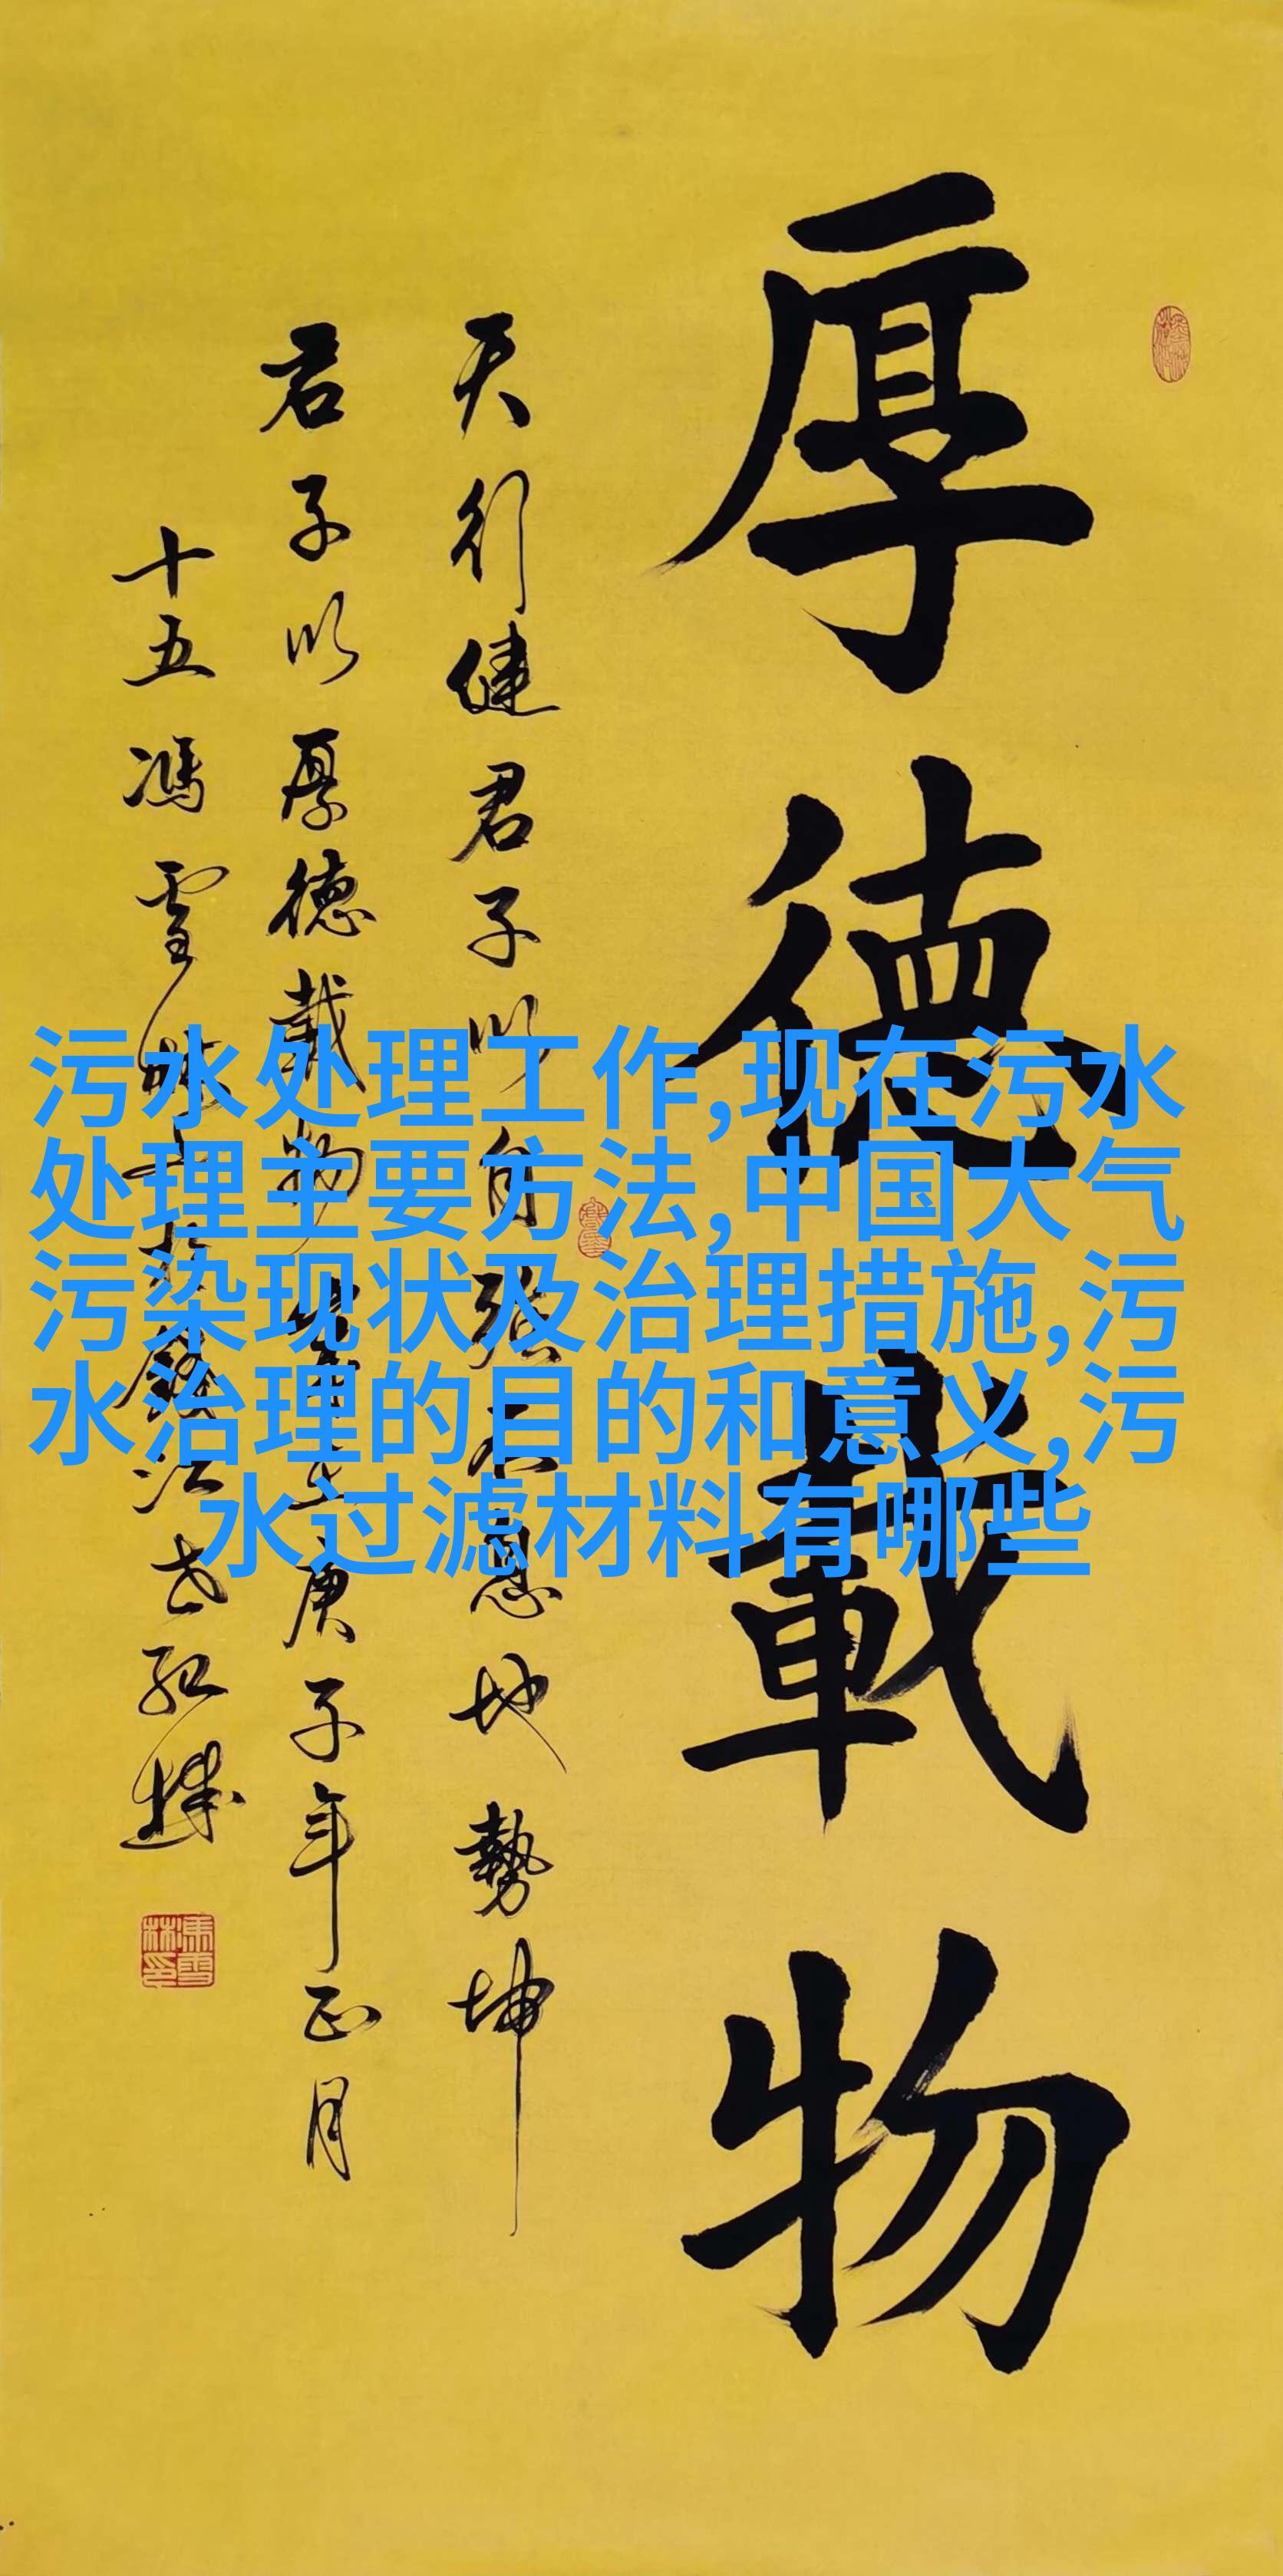 厚德載物
天行健君子以自强不息地勢坤
君子以厚德載物
庚子年正月
十五馮雪林
污水处理工作,现在污水
处理主要方法,中国大气
污染现状及治理措施,污
水治理的目的和意义,污
水过滤材料有哪些